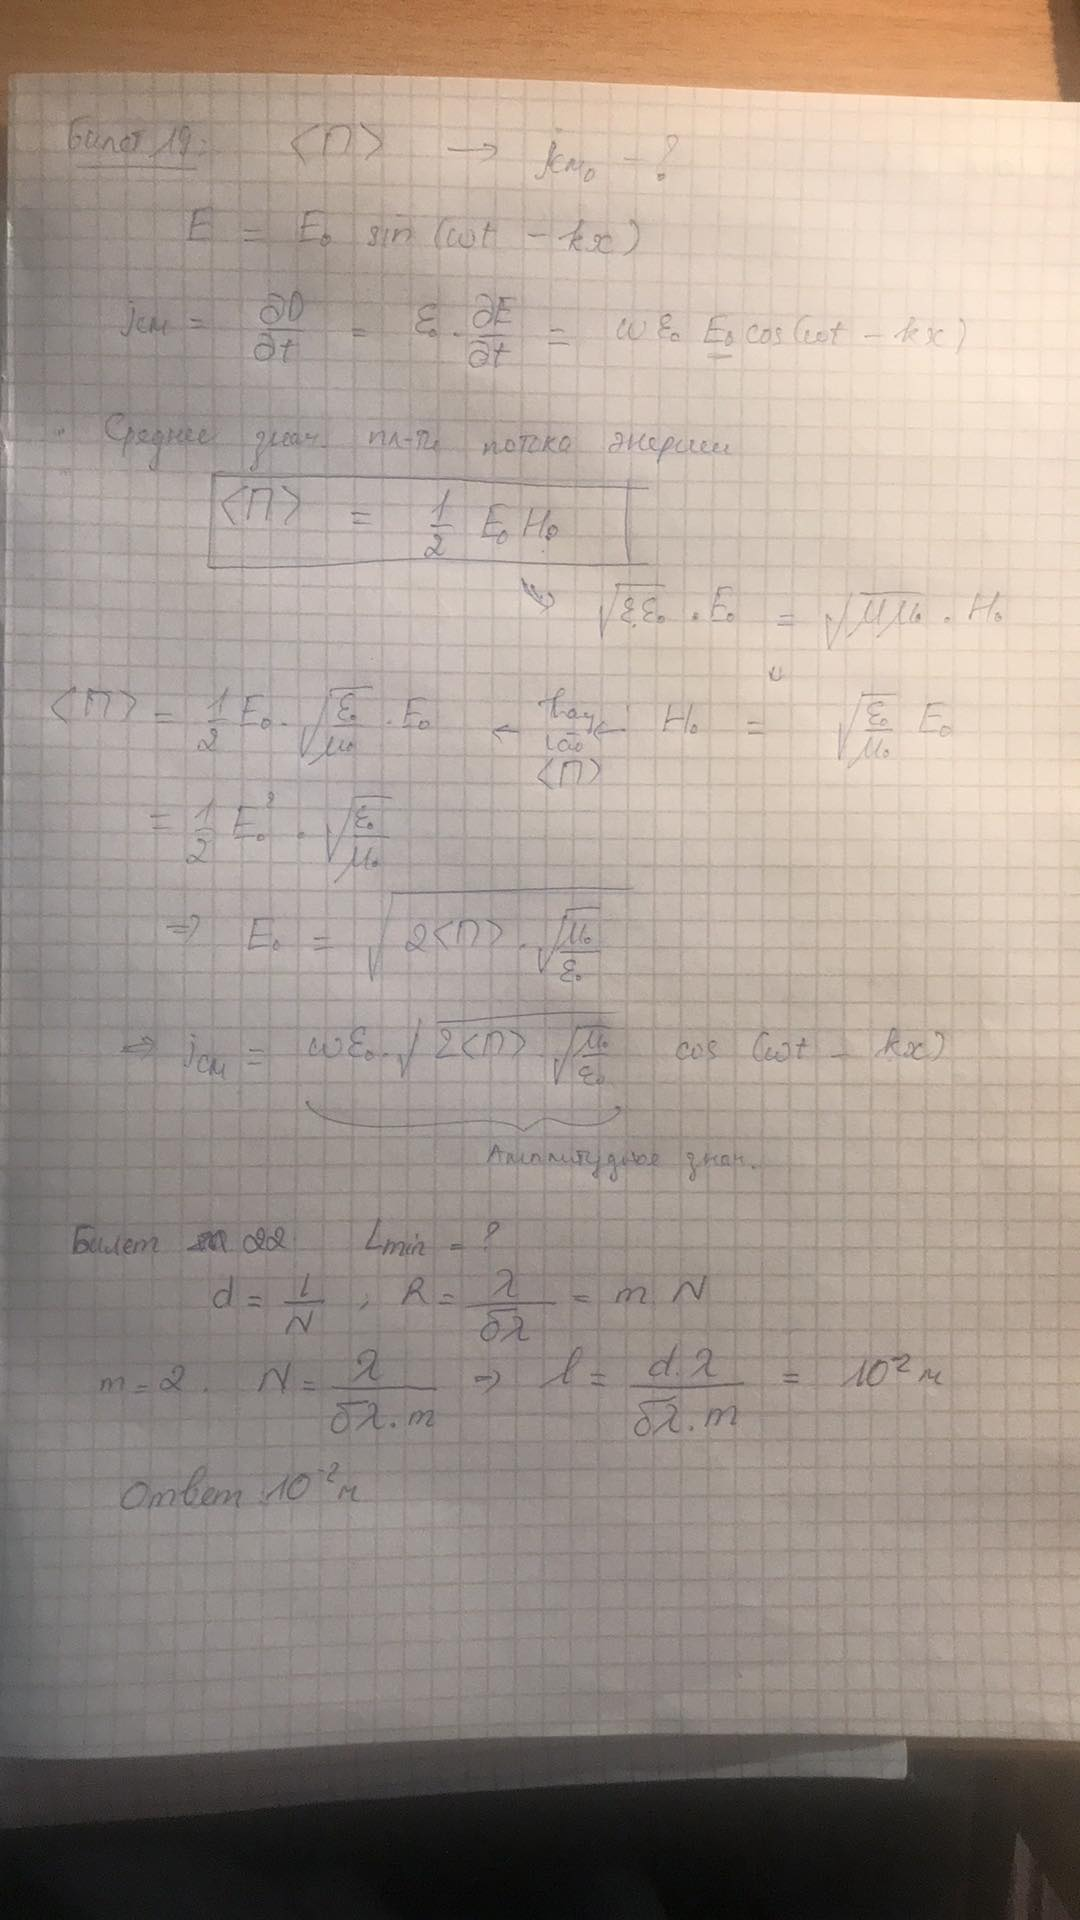 Билет 19: <П> → jсм₀ - ?
E = E₀ sin (ωt - kx)
jсм = ∂D/∂t = ε₀ · ∂E/∂t = ω ε₀ E₀ cos(ωt - kx)
Среднее знач. пл-ти потока энергии
<П> = 1/2 E₀ H₀
→ √(εε₀) · E₀ = √(μμ₀) · H₀
<П> = 1/2 E₀ · √(ε₀/μ₀) · E₀ ← thay vào <П> ← H₀ = √(ε₀/μ₀) E₀
= 1/2 E₀² · √(ε₀/μ₀)
⇒ E₀ = √(2<П> · √(μ₀/ε₀))
⇒ jсм = ωε₀ · √(2<П> √(μ₀/ε₀)) cos (ωt - kx)
Амплитудное знач.
Билет 22 Lmin = ?
d = l/N ; R = λ/δλ = m N
m = 2. N = λ/(δλ · m) ⇒ l = d·λ/(δλ · m) = 10⁻² м
Ответ 10⁻² м